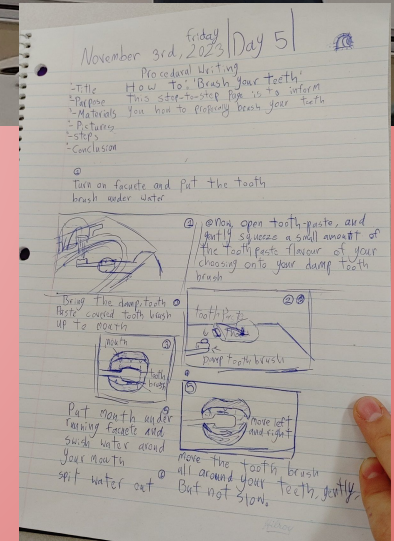 Friday
November 3rd, 2023 | Day 5 |
Procedural Writing
-Title How to: Brush your teeth
-Purpose This step-to-step page is to inform
-Materials you how to properly brush your teeth
-Pictures
-Steps
-Conclusion
①
Turn on facuete and put the tooth
brush under water
①
② Now, open tooth-paste, and
gently squeeze a small amount of
the tooth paste flavour of your
choosing onto your damp tooth
brush
Bring the damp, tooth ③
Paste covered tooth brush
up to mouth
②
tooth paste
damp tooth brush
③
mouth
tooth
brush
④
⑤
Move left
and right
Put mouth under
running facuete and
swish water around
your mouth
spit water out
Move the tooth brush
all around your teeth, gently,
But not slow.